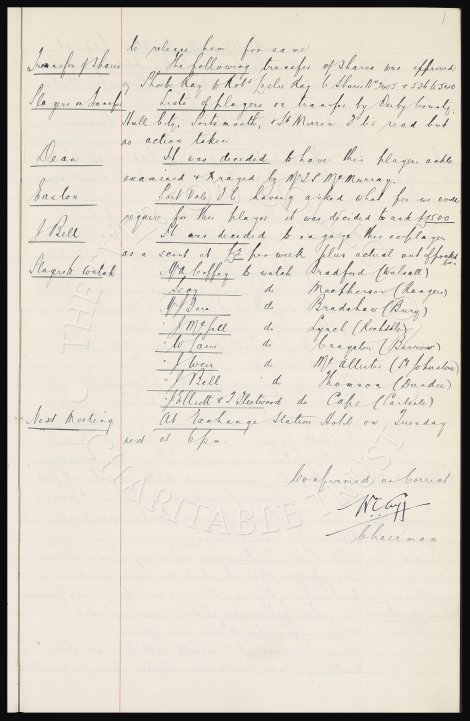 to release him for same
Transfer of Shares The following transfer of shares was approved
Phoebe Ray to Robt Leslie Ray 6 Shares Nos
Players on Transfer Lists of players on transfer by Derby County,
Hull City, Portsmouth, & St Mirren F.C. was read but
no action taken
Dean It was decided to have this players ankle
examined & Xrayed by Mr McMurray.
Easton Port Vale F.C. having asked what fee we would
require for this player it was decided to ask £1500
J Bell It was decided to engage this explayer
as a scout at £3 per week plus actual out of pocket
Players to watch Mr Coffey to watch Bradford (Walsall)
do Macpherson (Rangers)
do Bradshaw (Bury)
J McGill do Lynch (Rochdale)
W Cain do Crayston (Barrow)
J Weir do McAllister (St Johnstone)
J Bell do Thomson (Dundee)
J Elliott & T Fleetwood do Cape (Carlisle)
Next Meeting At Exchange Station Hotel on Tuesday
next at 6pm.
Confirmed as Correct
W.C. Cuff
Chairman
THE
CHARITABLE TRUST